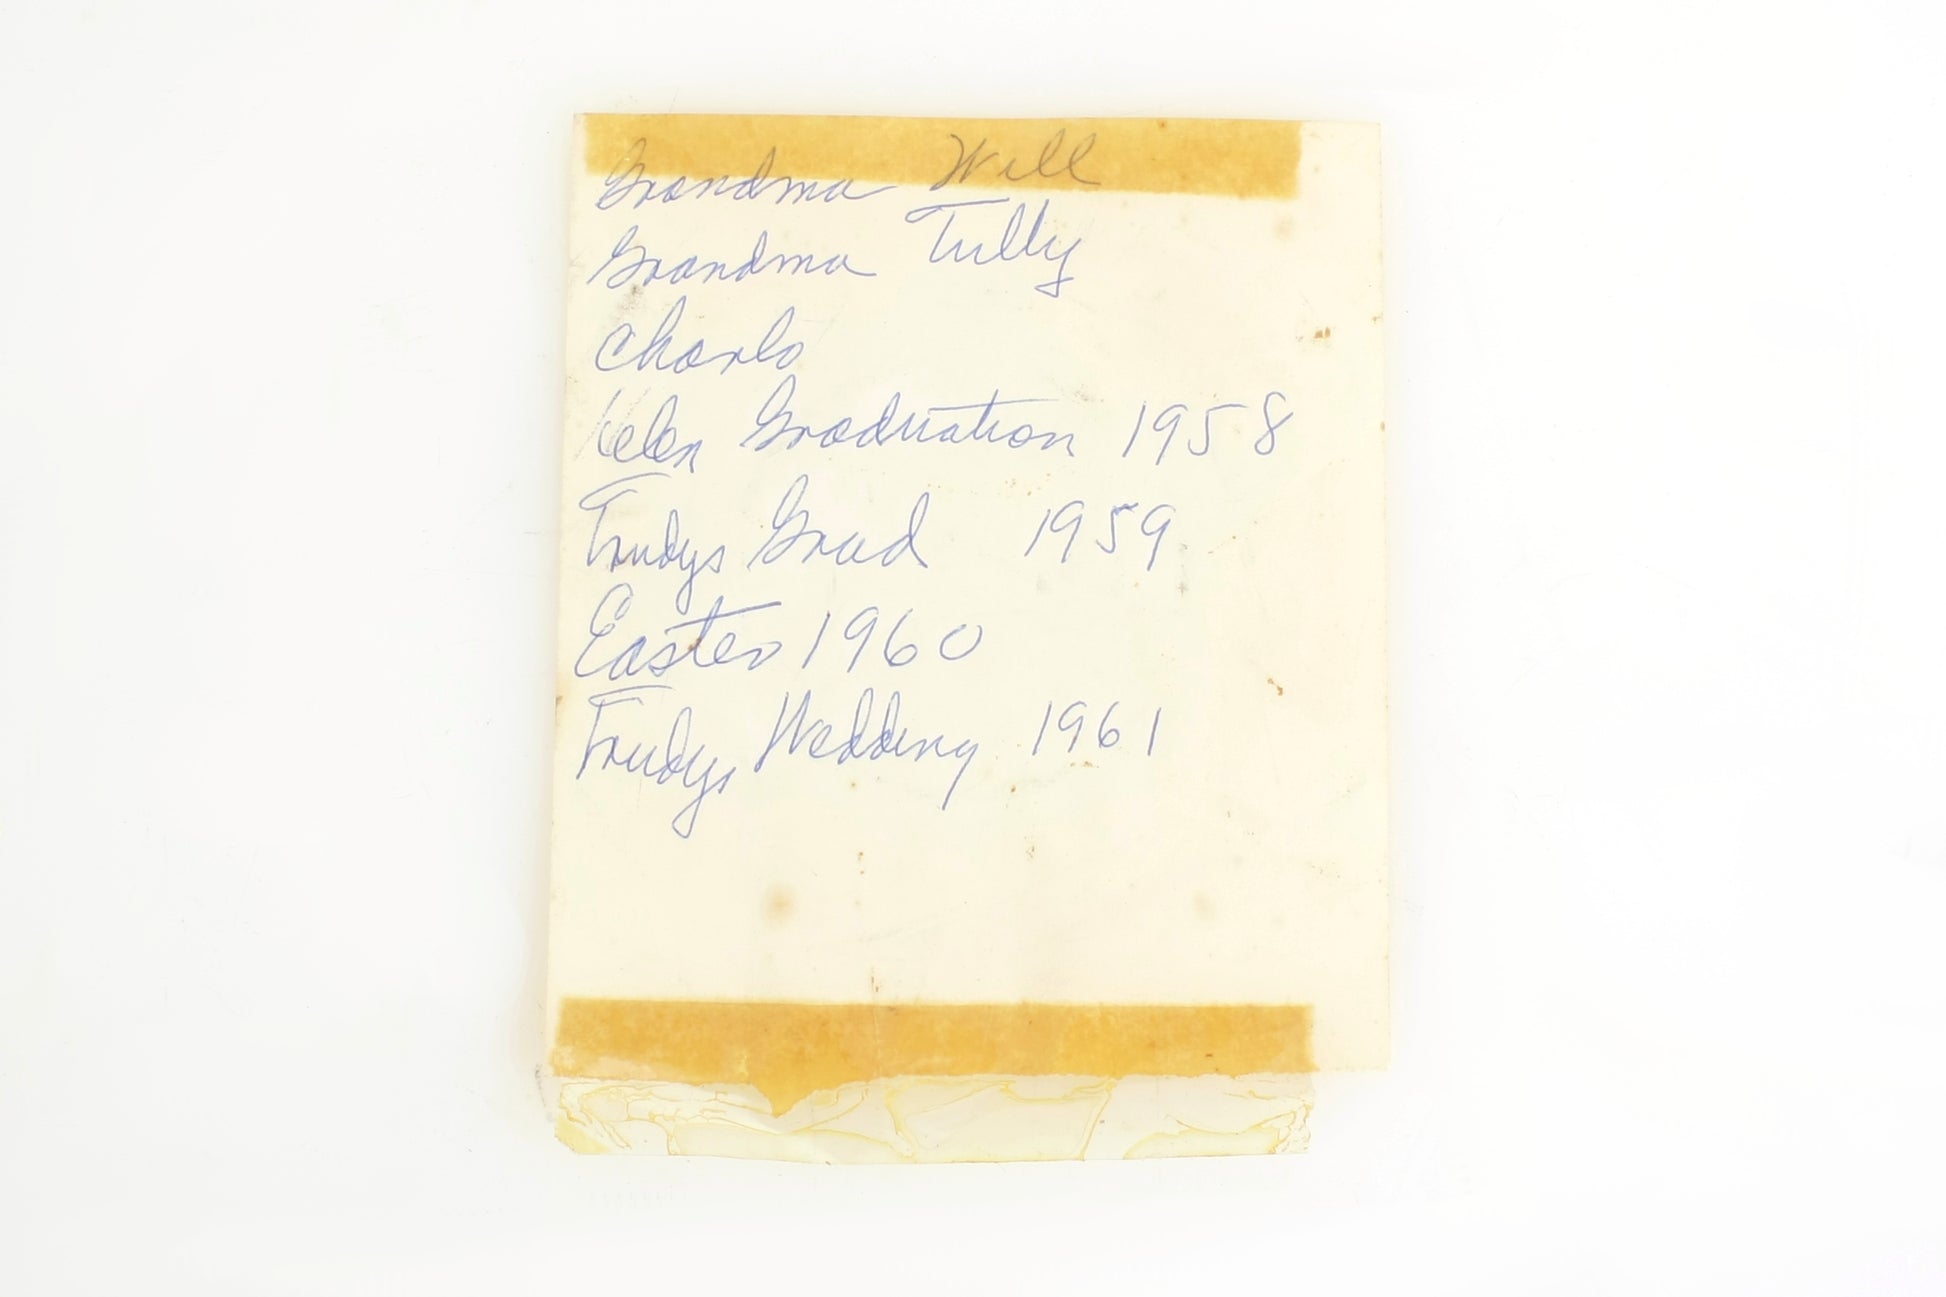 Grandma Will
Grandma Tully
Charls
Helen Graduation 1958
Trudys Grad 1959
Easter 1960
Trudys Wedding 1961